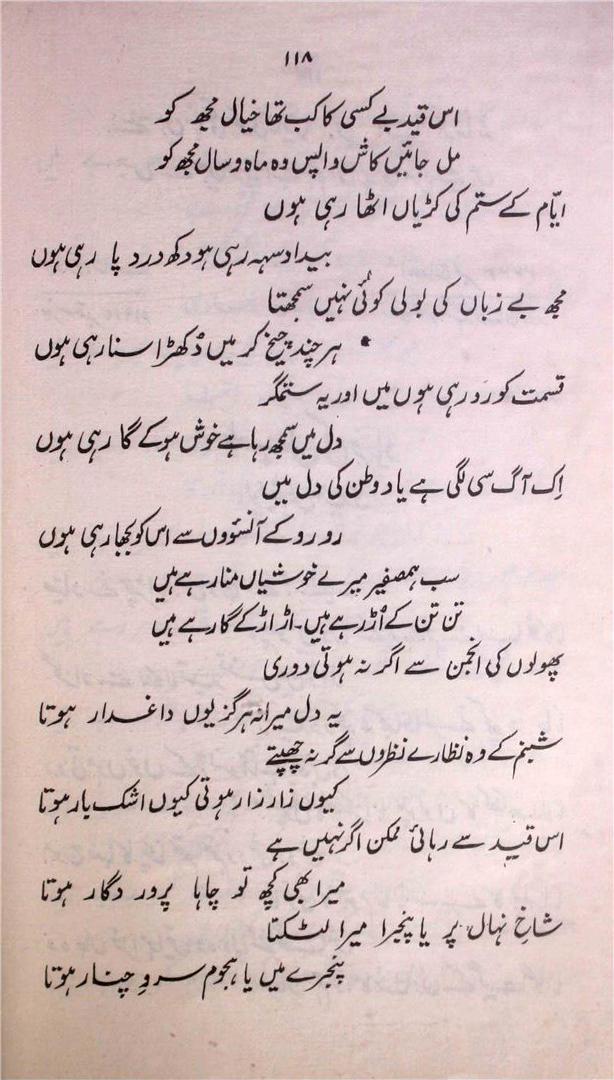 ۱۱۸
اس قید بے کسی کا کب تھا خیال مجھ کو
مل جائیں کاش واپس وہ ماہ و سال مجھ کو
ایّام کے ستم کی کڑیاں اٹھا رہی ہوں
بیداد سہہ رہی ہو دکھ درد پا رہی ہوں
مجھ بے زباں کی بولی کوئی نہیں سمجھتا
ہر چند چیخ کر میں دُکھڑا سنا رہی ہوں
قسمت کو رَو رہی ہوں میں اور یہ ستمگر
دل میں سمجھ رہا ہے خوش ہو کے گا رہی ہوں
اِک آگ سی لگی ہے یاد وطن کی دل میں
رو رو کے آنسؤوں سے اس کو بجھا رہی ہوں
سب ہمصفیر میرے خوشیاں منا رہے ہیں
تن تن کے اُڑ رہے ہیں۔ اڑ اڑ کے گا رہے ہیں
پھولوں کی انجمن سے اگر نہ ہوتی دوری
یہ دل میرا نہ ہرگز یوں داغدار ہوتا
شبنم کے وہ نظارے نظروں سے گر نہ چھپتے
کیوں زار زار ہوتی کیوں اشک بار ہوتا
اس قید سے رہائی ممکن اگر نہیں ہے
میرا بھی کچھ تو چاہا پرور دگار ہوتا
شاخِ نہال پر یا پنجیرا میرا لٹکتا
پنجرے میں یا ہجوم سرو چنار ہوتا